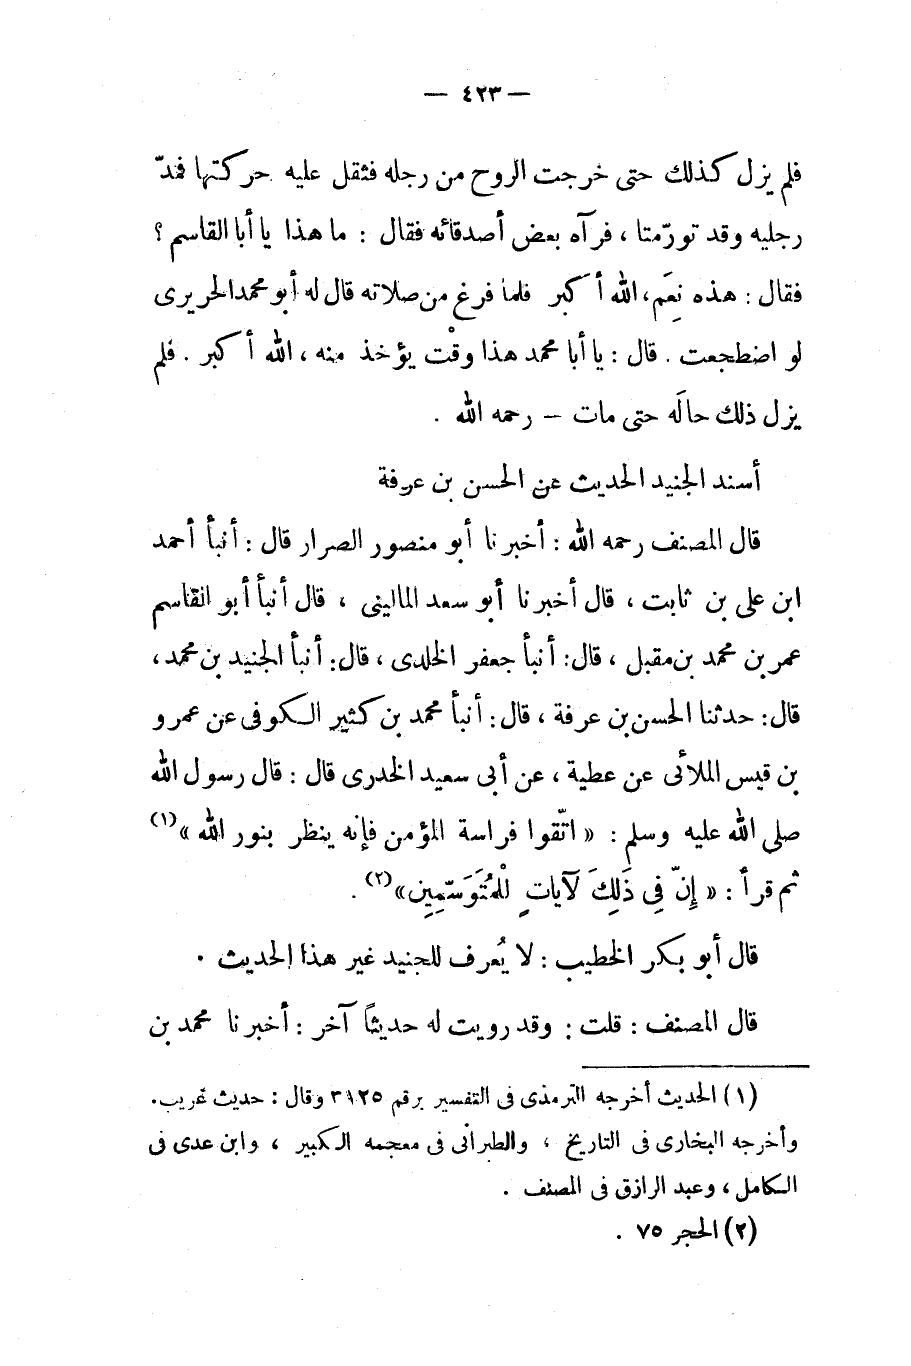 — ٤٢٣ —
فلم يزل كذلك حتى خرجت الروح من رجله فثقل عليه حركتها فمدّ
رجليه وقد تورّمتا ، فرآه بعض أصدقائه فقال : ما هذا يا أبا القاسم ؟
فقال : هذه نِعَم، الله أكبر فلما فرغ من صلاته قال له أبو محمد الحريرى
لو اضطجعت . قال : يا أبا محمد هذا وقْت يؤخذ منه ، الله أكبر . فلم
يزل ذلك حالَه حتى مات – رحمه الله .
أسند الجنيد الحديث عن الحسن بن عرفة
قال المصنف رحمه الله : أخبرنا أبو منصور الصرار قال : أنبأ أحمد
ابن على بن ثابت ، قال أخبرنا أبو سعد المالينى ، قال أنبأ أبو القاسم
عمر بن محمد بن مقبل ، قال: أنبأ جعفر الخلدى ، قال: أنبأ الجنيد بن محمد ،
قال: حدثنا الحسن بن عرفة ، قال: أنبأ محمد بن كثير الكوفى عن عمرو
بن قيس الملائى عن عطية ، عن أبى سعيد الخدرى قال : قال رسول الله
صلى الله عليه وسلم : « اتّقوا فراسة المؤمن فإنه ينظر بنور الله »(١)
ثم قرأ : « إِنّ فِى ذَلِكَ لآيات لِلْمُتَوَسّمِين»(٢) .
قال أبو بكر الخطيب : لا يُعرف للجنيد غير هذا الحديث .
قال المصنف : قلت : وقد رويت له حديثاً آخر : أخبرنا محمد بن
(١) الحديث أخرجه الترمذى فى التفسير برقم ٣١٢٥ وقال : حديث غريب.
وأخرجه البخارى فى التاريخ ، والطبرانى فى معجمه الكبير ، وابن عدى فى
الكامل ، وعبد الرازق فى المصنف .
(٢) الحجر ٧٥ .